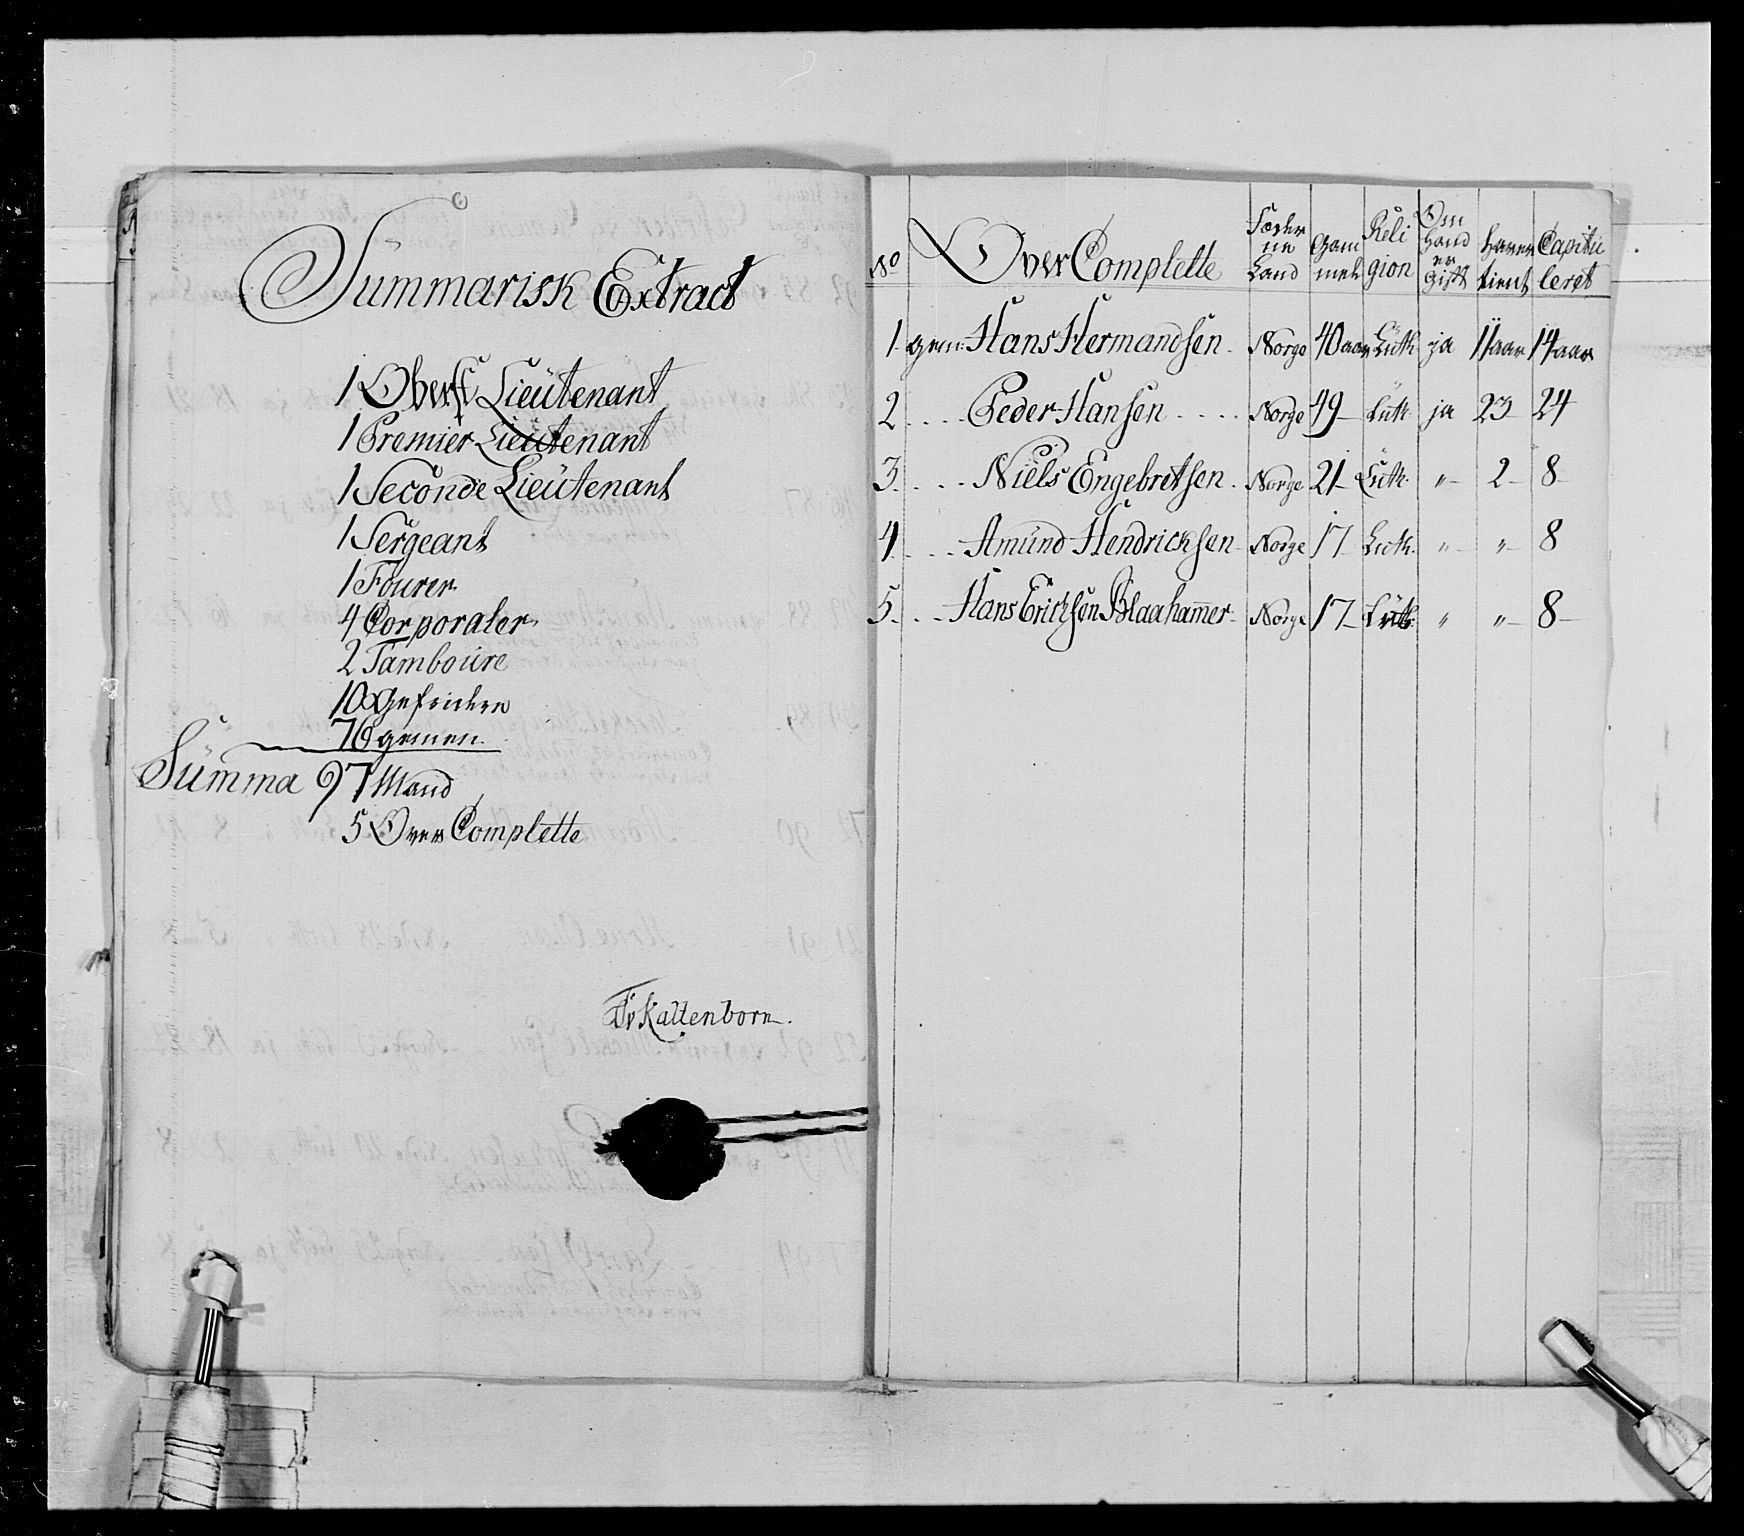 Summarisk Extract
1 Oberst Lieütenant
1 Premier Lieutenant
1 Seconde Lieütenant
1 Sergeant
1 Fourer
4 Corporaler
2 Tamboure
10 Gefridere
76 gemen
Summa 97 Mand
5 Over Complette
FvKaltenborn.
No Over Complette Föder ne Land Gam mel Reli gion Om hand er Gift haver tient Capitu leret
1 gem: Hans Hermandsen Norge 40 aar Lüth ja 11 aar 14 aar
2 .... Peder Hansen .... Norge 49 Lüth ja 23 24
3. .... Niels Engebretsen. Norge 21 Lüth. „ 2 8
4 .... Amund Hendricksen Norge 17 Luth. „ „ 8
5. ... Hans Erichsen Blaahamer Norge 17 Lüth: „ „ 8